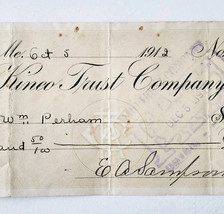 Me. Oct 5 1912 No
Kineo Trust Company
Wm Perham $
and 50/100
E A Sampson